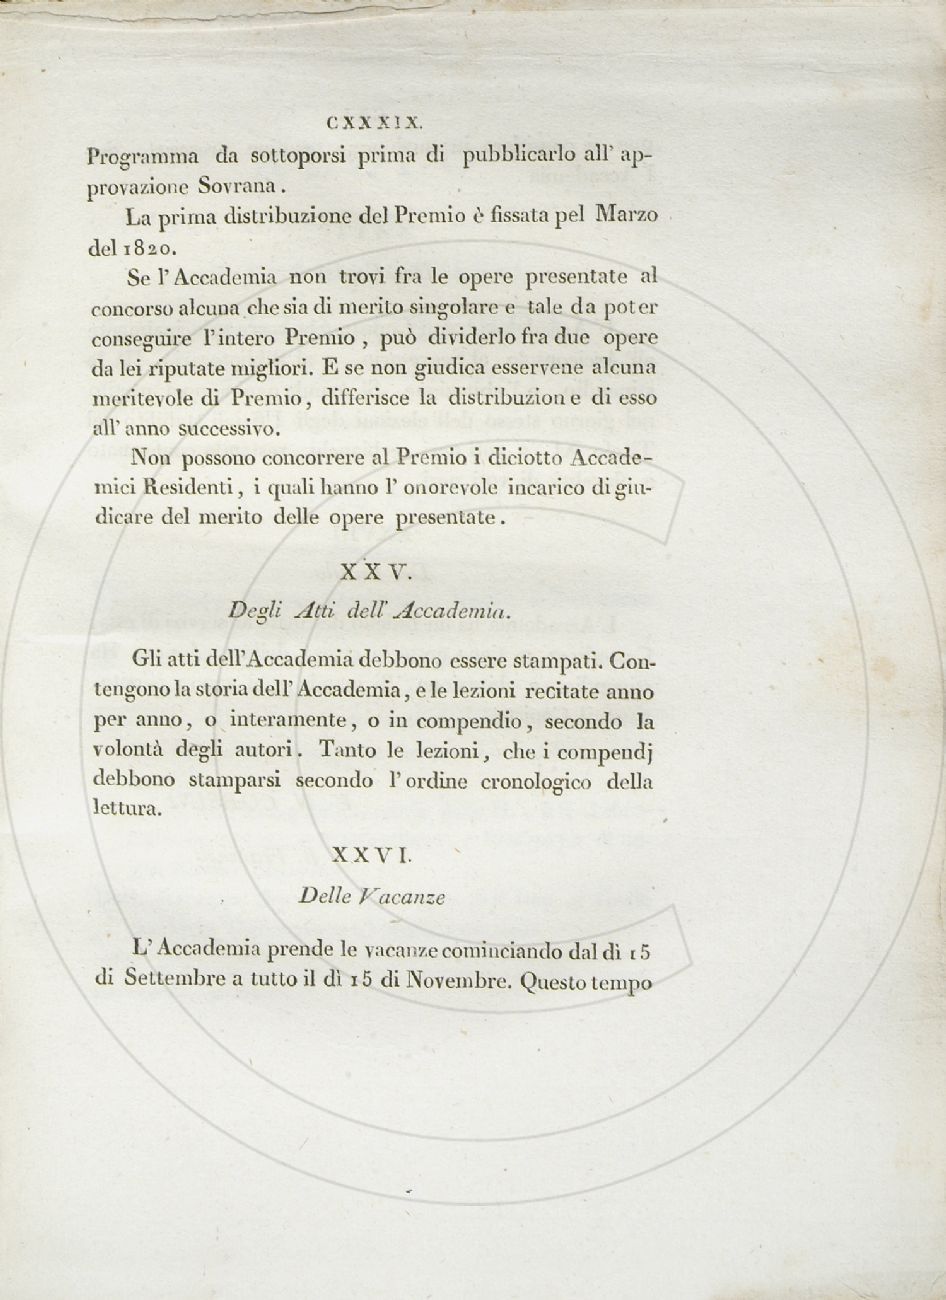 CXXXIX.
Programma da sottoporsi prima di pubblicarlo all' ap-
provazione Sovrana.
La prima distribuzione del Premio è fissata pel Marzo
del 1820.
Se l'Accademia non trovi fra le opere presentate al
concorso alcuna che sia di merito singolare e tale da poter
conseguire l'intero Premio, può dividerlo fra due opere
da lei riputate migliori. E se non giudica esservene alcuna
meritevole di Premio, differisce la distribuzione di esso
all' anno successivo.
Non possono concorrere al Premio i diciotto Accade-
mici Residenti, i quali hanno l' onorevole incarico di giu-
dicare del merito delle opere presentate.
XXV.
Degli Atti dell' Accademia.
Gli atti dell'Accademia debbono essere stampati. Con-
tengono la storia dell' Accademia, e le lezioni recitate anno
per anno, o interamente, o in compendio, secondo la
volontà degli autori. Tanto le lezioni, che i compendj
debbono stamparsi secondo l'ordine cronologico della
lettura.
XXVI.
Delle Vacanze
L' Accademia prende le vacanze cominciando dal dì 15
di Settembre a tutto il dì 15 di Novembre. Questo tempo